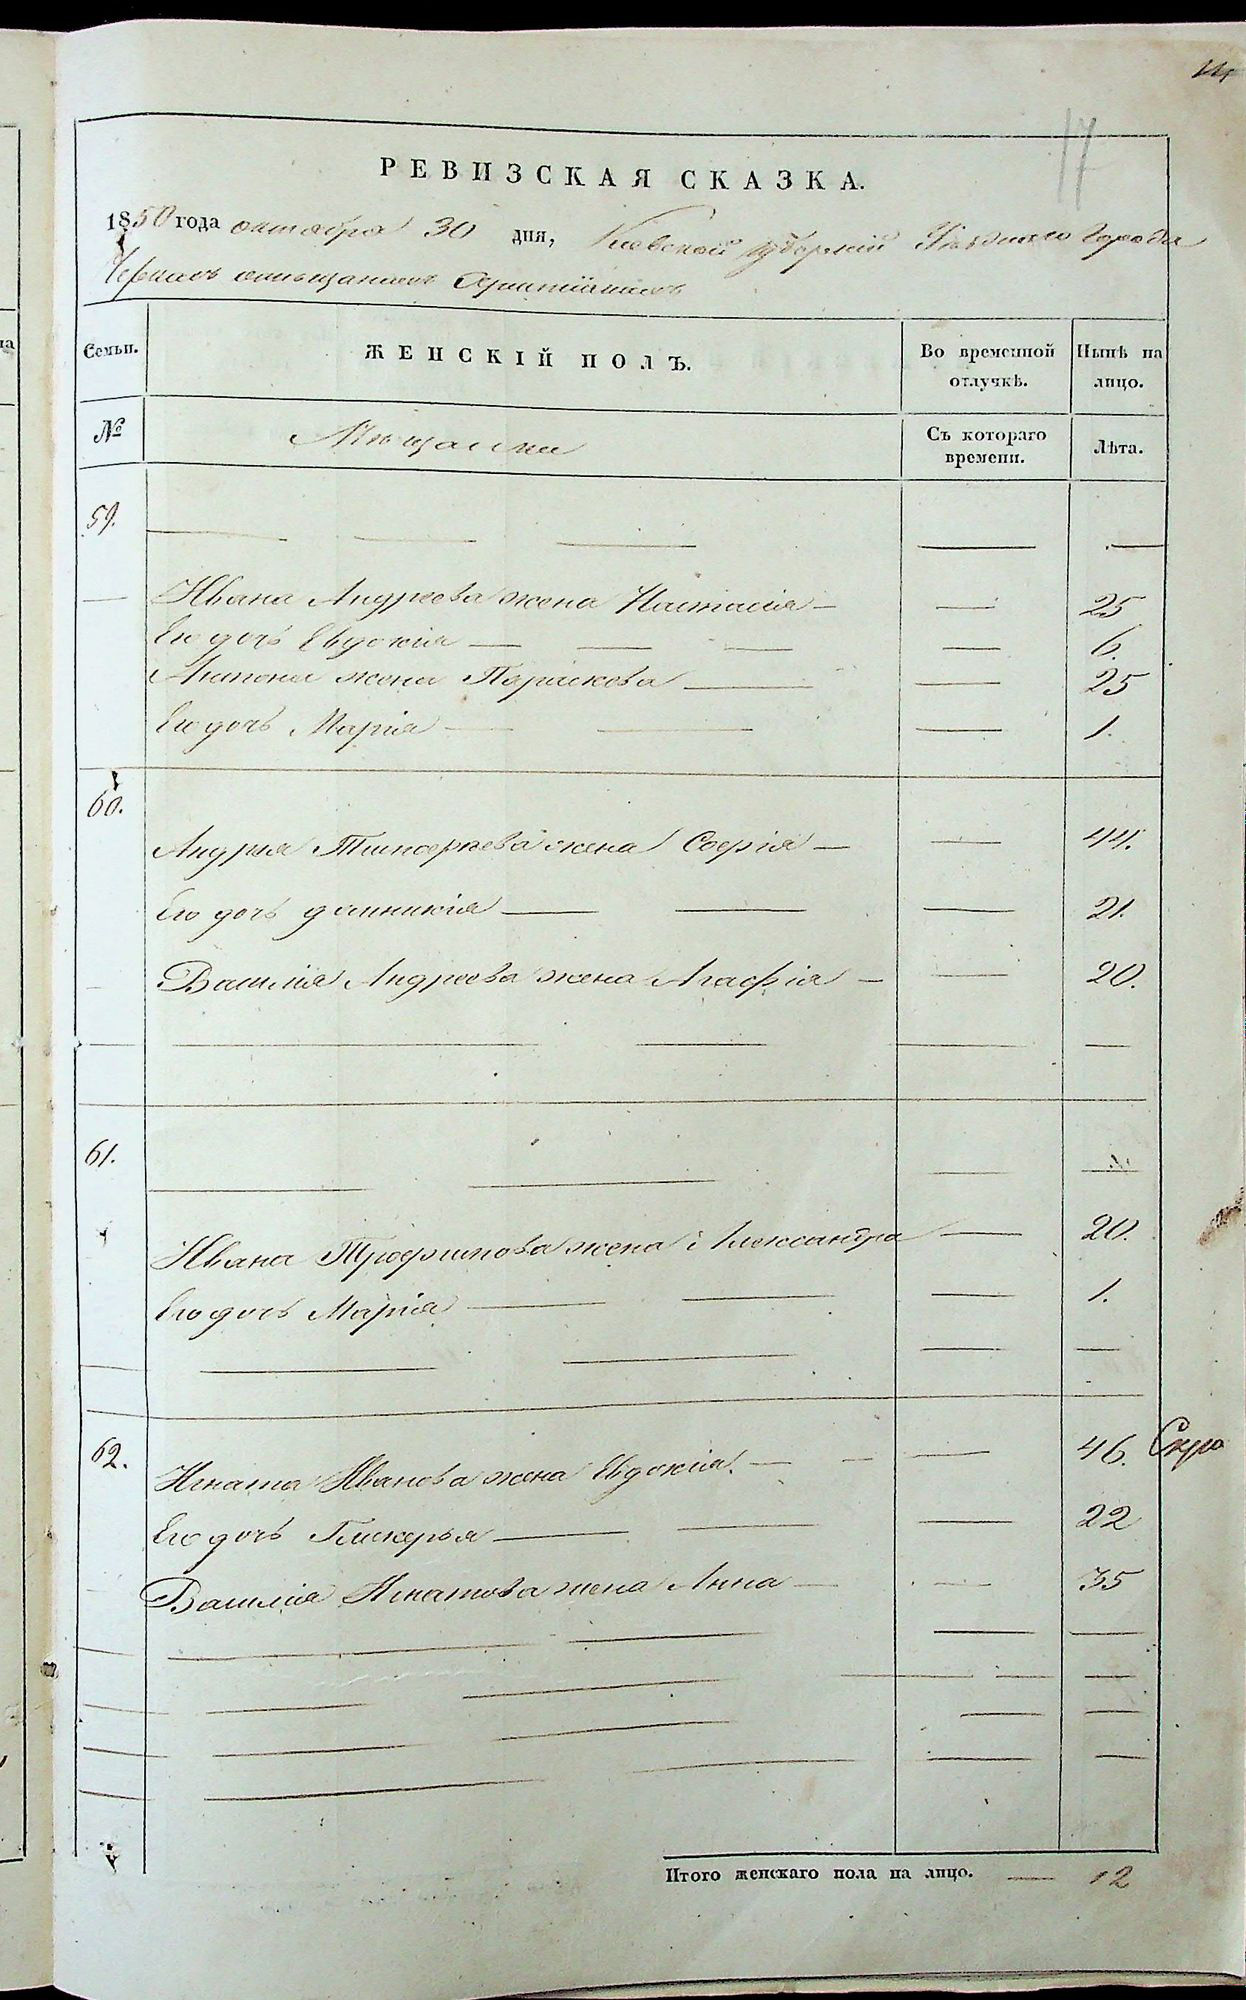 14
17
РЕВИЗСКАЯ СКАЗКА.
1850 года октября 30 дня, Киевской губернии Уезднаго Города
Черкас о мещанах Христианах
Семьи. ЖЕНСКІЙ ПОЛЪ. Во временной отлучкѣ. Нынѣ на лицо.
№ Мещанки Съ котораго времени. Лѣта.
59.
Ивана Андреева жена Настасия 25
Его дочь Евдокия 6.
Антона жена Параскева 25
Его дочь Мария 1.
60.
Андрея Тимофеева жена София 44.
Его дочь Домникия 21.
Василия Андреева жена Агафия 20.
61.
Ивана Трофимова жена Александра 20.
Его дочь Мария 1.
62.
Игната Иванова жена Евдокия 46.
Его дочь Гликерья 22
Василия Игнатова жена Анна 35
Итого женскаго пола на лицо. 12